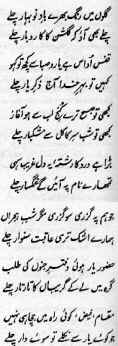 گلوں میں رنگ بھرے باد نو بہار چلے
چلے بھی آؤ کہ گلشن کا کاروبار چلے
قفس اداس ہے یارو صبا سے کچھ تو کہو
کہیں تو بہر خدا آج ذکر یار چلے
کبھی تو صبح ترے کنج لب سے ہو آغاز
کبھی تو شب سر کاکل سے مشکبار چلے
بڑا ہے درد کا رشتہ یہ دل غریب سہی
تمھارے نام پہ آئیں گے غمگسار چلے
جو ہم پہ گزری سو گزری مگر شب ہجراں
ہمارے اشک تری عاقبت سنوار چلے
حضور یار ہوئی دفتر جنوں کی طلب
گرہ میں لے کے گریباں کا تار تار چلے
مقام، فیض، کوئی راہ میں جچا ہی نہیں
جو کوئے یار سے نکلے تو سوئے دار چلے